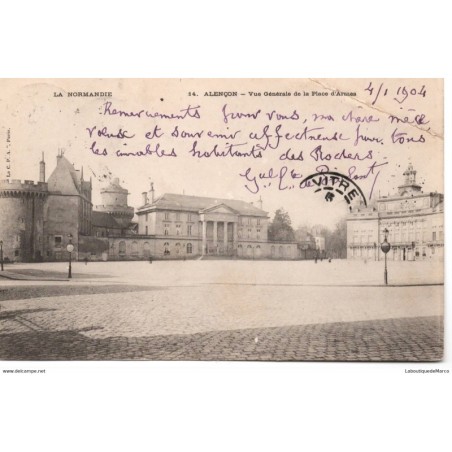 LA NORMANDIE 24. ALENÇON – Vue Générale de la Place d'Armes
4/1 1904
Remerciements pour vous, ma chère
et souvenir affectueux pour tous
les aimables habitants des Rochers.
VITRÉ
www.delcampe.net
LaboutiquedeMarco